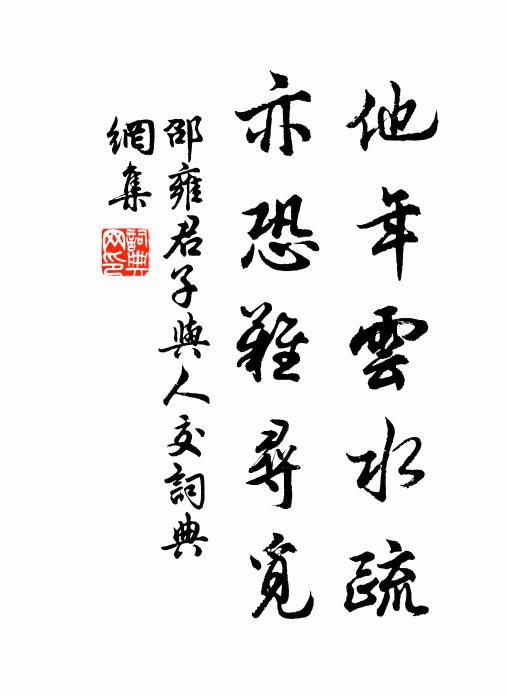 他年雲水疏
亦恐難尋覓
邵雍君子與人交詞典
網集
詞典
网印